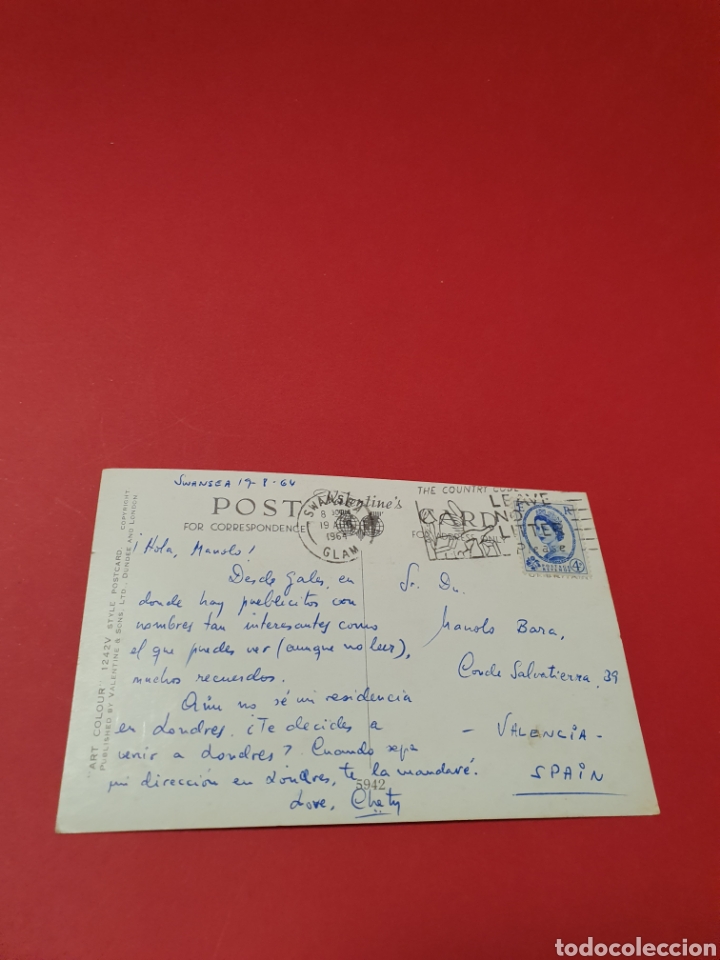 SWANSEA 19-8-64
POST CARD
Valentine's
FOR CORRESPONDENCE
FOR ADDRESS ONLY
SWANSEA
19 AUG
1964
GLAM
THE COUNTRY CODE
LEAVE
NO
LITTER
4D
¡Hola, Manolo!
Desde Gales, en
donde hay pueblecitos con
nombres tan interesantes como
el que puedes ver (aunque no leer),
muchos recuerdos.
Aún no sé mi residencia
en Londres. ¿Te decides a
venir a Londres? Cuando sepa
mi dirección en Londres, te la mandaré.
Love, Chaty
Sr. Dn.
Manolo Bara,
Conde Salvatierra, 39
- VALENCIA -
SPAIN
5942
"ART COLOUR" 1242V STYLE POSTCARD. COPYRIGHT
PUBLISHED BY VALENTINE & SONS, LTD., DUNDEE AND LONDON.
todocoleccion